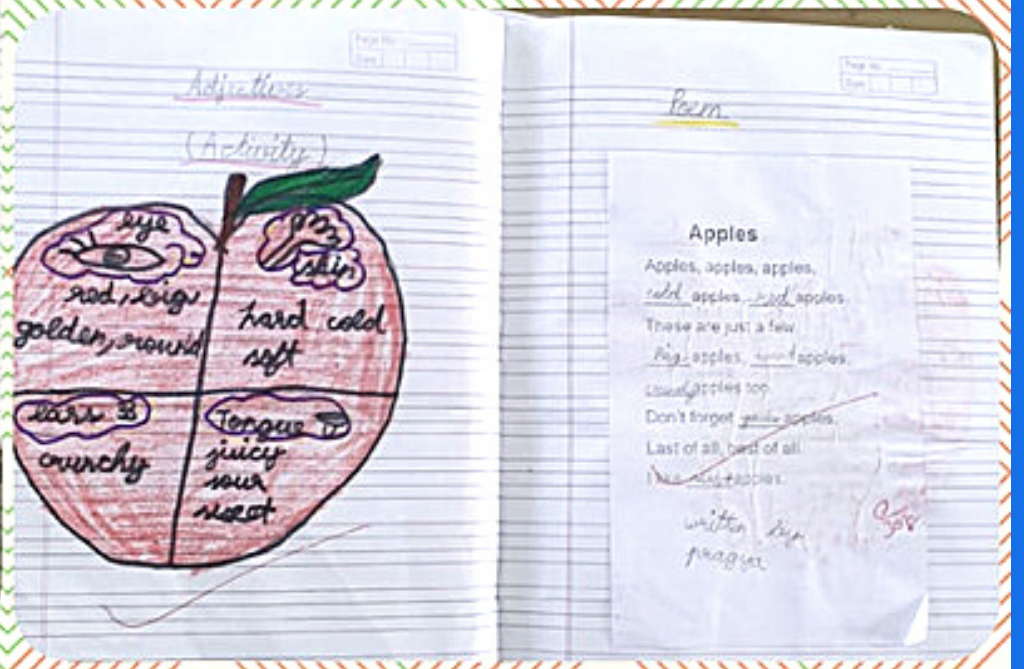 Page No.
Date
Adjectives
(Activity)
eye
red, big
golden, round
skin
hard cold
soft
ears
crunchy
Tongue
juicy
sour
sweet
Page No.
Date
Poem
Apples
Apples, apples, apples,
cold apples, red apples.
These are just a few.
Big apples, apples,
apples too.
Don't forget apples.
Last of all, best of all.
I like apples.
written by
pragya